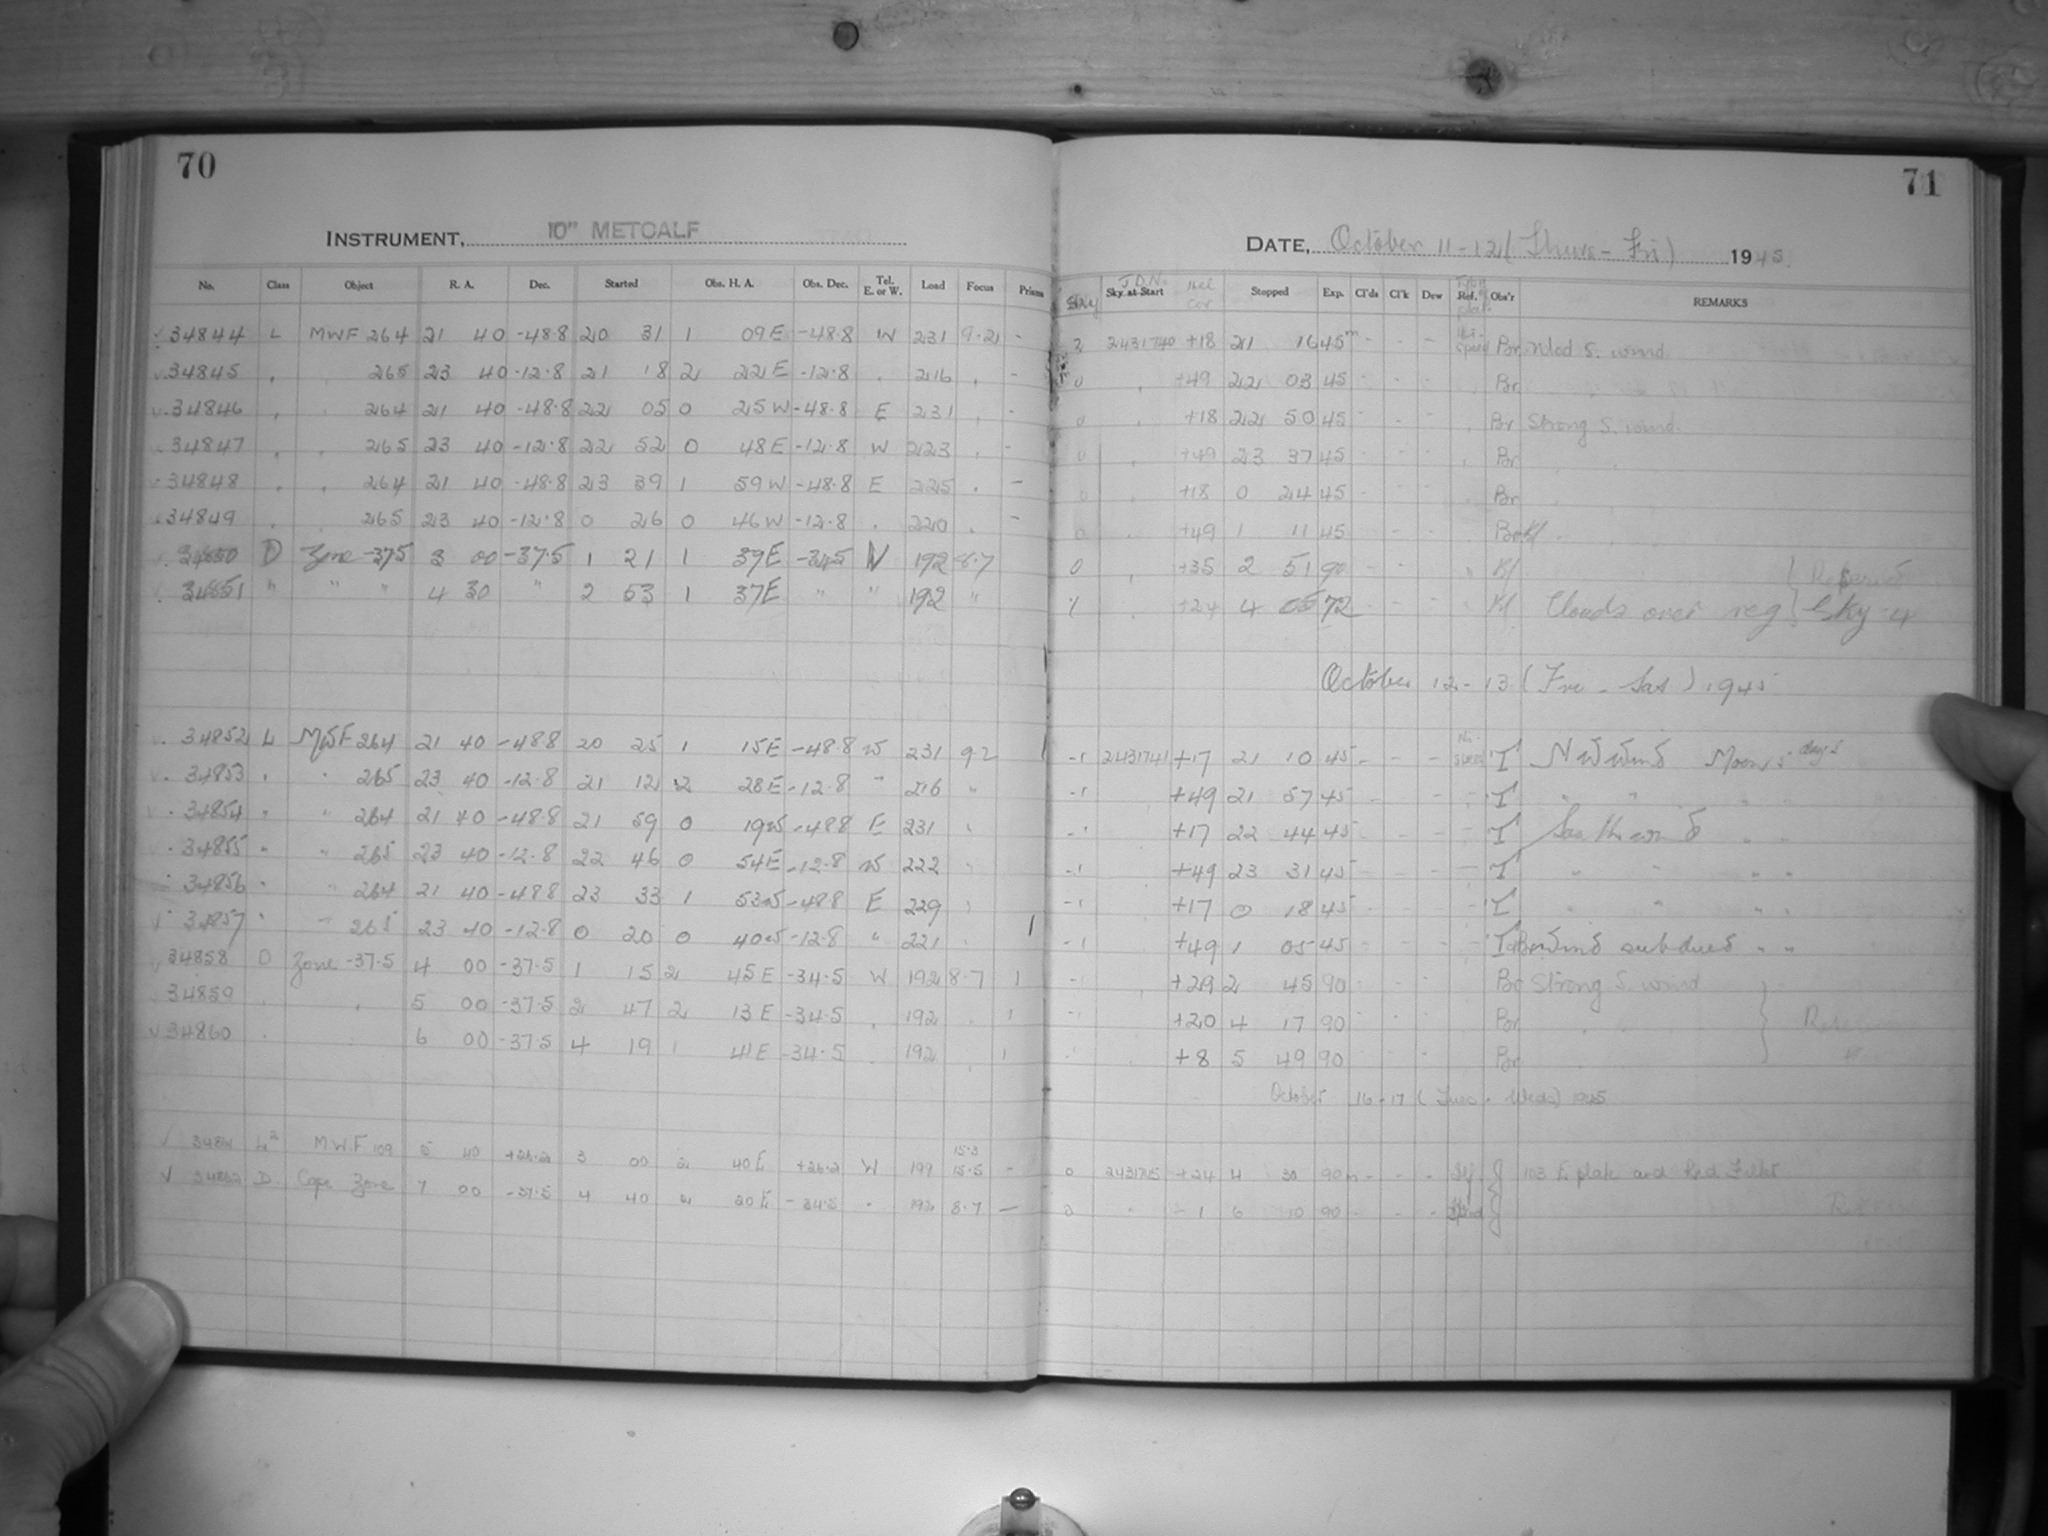 70
INSTRUMENT, 10" METCALF
No. Class Object R. A. Dec. Started Obs. H. A. Obs. Dec. Tel. E. or W. Load Focus Prism
34844 L MWF 264 21 40 -48.8 20 31 1 09E -48.8 W 231 9.2 -
34845 " " 265 23 40 -12.8 21 18 2 22E -12.8 " 216 " -
34846 " " 264 21 40 -48.8 22 05 0 25W -48.8 E 231 " -
34847 " " 265 23 40 -12.8 22 52 0 48E -12.8 W 223 " -
34848 " " 264 21 40 -48.8 23 39 1 59W -48.8 E 225 " -
34849 " " 265 23 40 -12.8 0 26 0 46W -12.8 " 220 " -
34850 D Zone -37.5 3 00 -37.5 1 21 1 39E -34.5 W 192 8.7
34851 " " " 4 30 " 2 53 1 37E " " 192 "
34852 L MWF 264 21 40 -48.8 20 25 1 15E -48.8 W 231 9.2
34853 " " 265 23 40 -12.8 21 12 2 28E -12.8 " 216 "
34854 " " 264 21 40 -48.8 21 59 0 19W -48.8 E 231 "
34855 " " 265 23 40 -12.8 22 46 0 54E -12.8 W 222 "
34856 " " 264 21 40 -48.8 23 33 1 53W -48.8 E 229 "
34857 " " 265 23 40 -12.8 0 20 0 40W -12.8 " 221 "
34858 D Zone -37.5 4 00 -37.5 1 15 2 45E -34.5 W 192 8.7
34859 " " 5 00 -37.5 2 47 2 13E -34.5 " 192 "
34860 " " 6 00 -37.5 4 19 1 41E -34.5 " 192 "
34861 L² M.W.F 109 5 40 +26.2 3 00 2 40E +26.2 W 199 15.3 15.5 -
34862 D Cape Zone 7 00 -37.5 4 40 2 20E -34.5 " 192 8.7 -
71
DATE, October 11-12 (Thurs - Fri) 1945.
Sky J.D.N. Sky at Start Hel cor Stopped Exp. Cl'ds Cl'k Dew Ref. Obs'r REMARKS
2 2431740 +18 21 16 45m - - - Hi-speed Br Mod S. wind
0 " +49 22 03 45 - - - Br
0 " +18 22 50 45 - - - Br Strong S. wind
0 " +49 23 37 45 - - - Br " "
0 " +18 0 24 45 - - - Br "
0 " +49 1 11 45 - - - Br Kl " "
0 " +35 2 51 90 - - - Kl
" +24 4 05 72 - - - Kl Clouds over reg Sky -4
October 12-13 (Fri - Sat) 1945
-1 2431741 +17 21 10 45 - - - Hi-speed T NW wind Moon 5 days
-1 +49 21 57 45 - - - T " " " "
-1 +17 22 44 45 - - - T South wind " "
-1 +49 23 31 45 - - - T " " " "
-1 +17 0 18 45 - - - T " " " "
-1 +49 1 05 45 - - - T&Br Wind subdued " "
-1 " +29 2 45 90 - - - Br Strong S. wind
-1 " +20 4 17 90 - - - Br "
-1 " +8 5 49 90 - - - Br
October 16-17 (Tues - Weds) 1945
0 2431745 +24 4 30 90m - - - J 103 E plate and Red Filter
0 " 1 6 10 90 - - - J